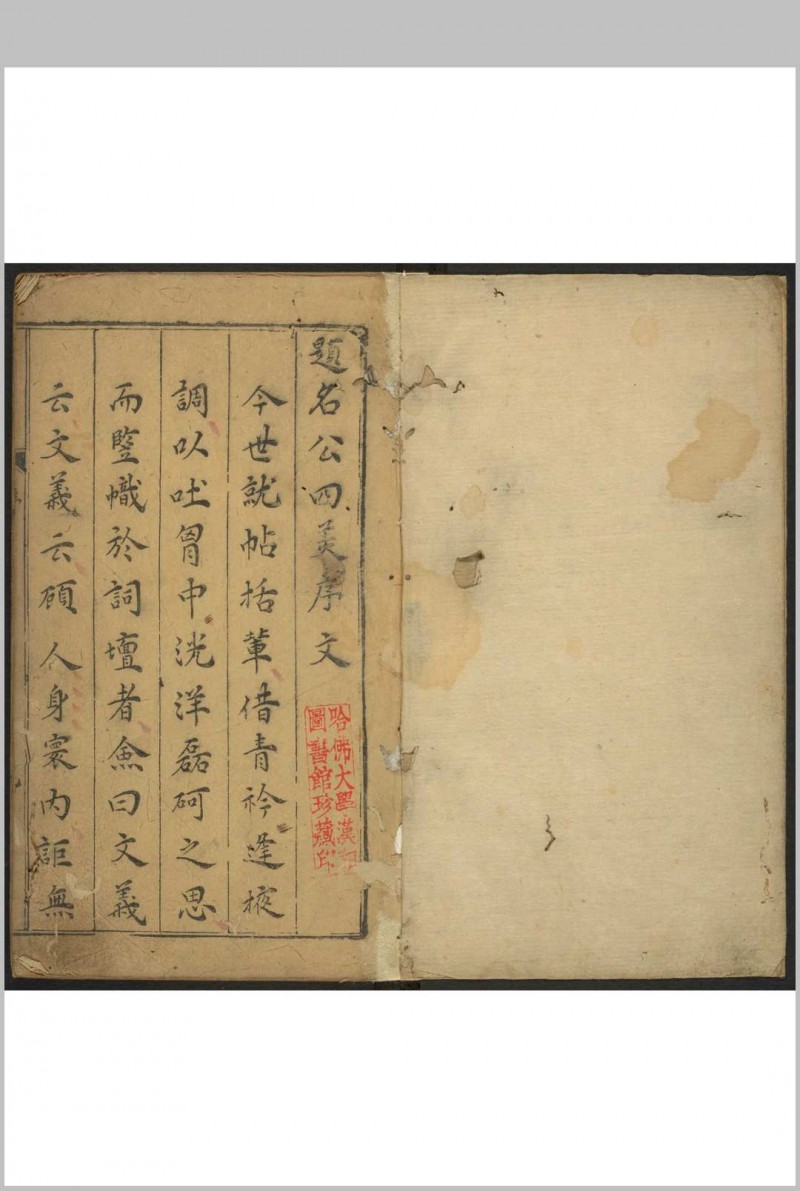 題名公四美序文
今世就帖括輩借青衿逢掖
調以吐胷中洸洋磊砢之思
而豎幟於詞壇者僉曰文義
云文義云頋人身寰内詎無
哈佛大學漢和
圖書館珍藏印